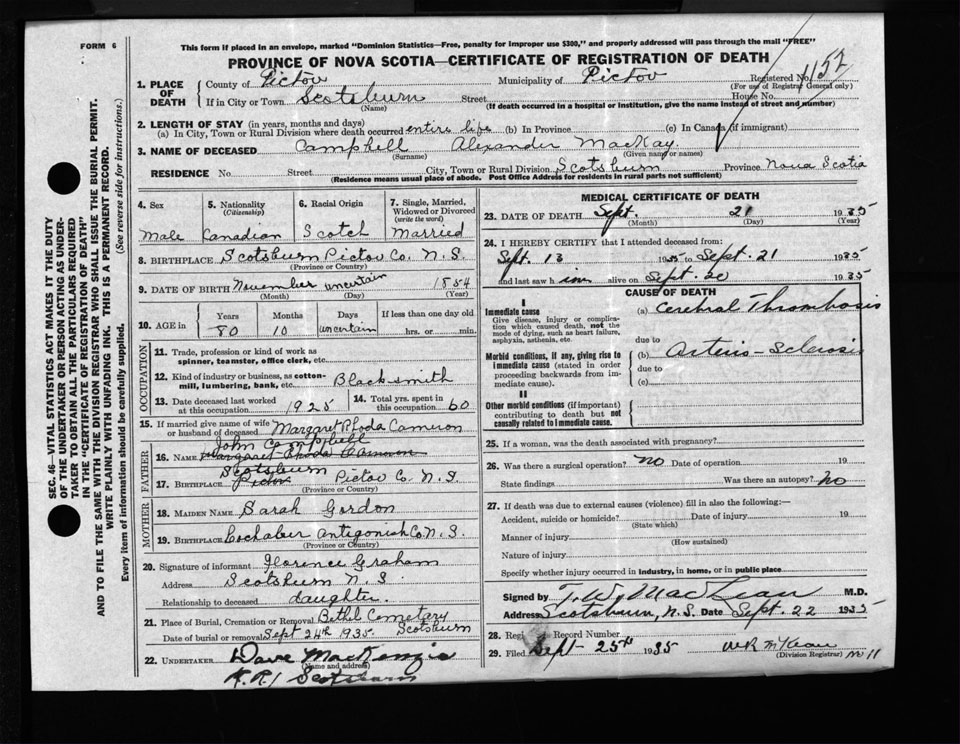 FORM 6
This form if placed in an envelope, marked "Dominion Statistics—Free, penalty for improper use $300," and properly addressed will pass through the mail "FREE"
PROVINCE OF NOVA SCOTIA—CERTIFICATE OF REGISTRATION OF DEATH
1. PLACE OF DEATH
County of Pictou Municipality of Pictou Registered No. 1152
(For use of Registrar General only)
If in City or Town Scotsburn Street House No.
(Name) (If death occurred in a hospital or institution, give the name instead of street and number)
2. LENGTH OF STAY (in years, months and days)
(a) In City, Town or Rural Division where death occurred entire life (b) In Province (c) In Canada (if immigrant)
3. NAME OF DECEASED Campbell Alexander MacKay
(Surname) (Given name or names)
RESIDENCE No. Street City, Town or Rural Division Scotsburn Province Nova Scotia
(Residence means usual place of abode. Post Office Address for residents in rural parts not sufficient)
SEC. 46—VITAL STATISTICS ACT MAKES IT THE DUTY
OF THE UNDERTAKER OR PERSON ACTING AS UNDER-
TAKER TO OBTAIN ALL THE PARTICULARS REQUIRED
IN THE "CERTIFICATE OF REGISTRATION OF DEATH"
AND TO FILE THE SAME WITH THE DIVISION REGISTRAR WHO SHALL ISSUE THE BURIAL PERMIT.
WRITE PLAINLY WITH UNFADING INK. THIS IS A PERMANENT RECORD.
Every item of information should be carefully supplied. (See reverse side for instructions.)
4. Sex 5. Nationality (Citizenship) 6. Racial Origin 7. Single, Married, Widowed or Divorced (write the word)
Male Canadian Scotch Married
8. BIRTHPLACE Scotsburn Pictou Co. N.S.
(Province or Country)
9. DATE OF BIRTH November uncertain 1854
(Month) (Day) (Year)
10. AGE in Years Months Days If less than one day old
80 10 uncertain hrs. or min.
OCCUPATION
11. Trade, profession or kind of work as
spinner, teamster, office clerk, etc.
12. Kind of industry or business, as cotton-
mill, lumbering, bank, etc. Blacksmith
13. Date deceased last worked 14. Total yrs. spent in
at this occupation 1925 this occupation 60
15. If married give name of wife
or husband of deceased Margaret Rhoda Cameron
FATHER
John Campbell
16. NAME Margaret Rhoda Cameron
Scotsburn
17. BIRTHPLACE Pictou Pictou Co. N.S.
(Province or Country)
MOTHER
18. MAIDEN NAME Sarah Gordon
19. BIRTHPLACE Lochaber Antigonish Co. N.S.
(Province or Country)
20. Signature of informant Florence Graham
Address Scotsburn N.S.
Relationship to deceased daughter
21. Place of Burial, Cremation or Removal Bethel Cemetery
Date of burial or removal Sept 24th 1935. Scotsburn
22. UNDERTAKER Dave MacKenzie
(Name and address)
R.R.1 Scotsburn
MEDICAL CERTIFICATE OF DEATH
23. DATE OF DEATH Sept. 21 1935
(Month) (Day) (Year)
24. I HEREBY CERTIFY that I attended deceased from:
Sept. 13 1935 to Sept. 21 1935
and last saw him alive on Sept. 20 1935
CAUSE OF DEATH
I
Immediate cause (a) Cerebral Thrombosis
Give disease, injury or compli-
cation which caused death, not the
mode of dying, such as heart failure,
asphyxia, asthenia, etc.
due to
Morbid conditions, if any, giving rise to (b) Arterio-Sclerosis
immediate cause (stated in due to
order proceeding backwards from
immediate cause). (c)
II
Other morbid conditions (if important)
contributing to death but not
causally related to immediate cause.
25. If a woman, was the death associated with pregnancy?
26. Was there a surgical operation? no Date of operation 19
State findings Was there an autopsy? no
27. If death was due to external causes (violence) fill in also the following:—
Accident, suicide or homicide? Date of injury 19
(State which)
Manner of injury
(How sustained)
Nature of injury
Specify whether injury occurred in Industry, in home, or in public place
Signed by T. W. MacLean M.D.
Address Scotsburn, N.S. Date Sept. 22 1935
28. Regi Record Number
29. Filed Sept- 25th 1935 WR McKean
(Division Registrar) No 11